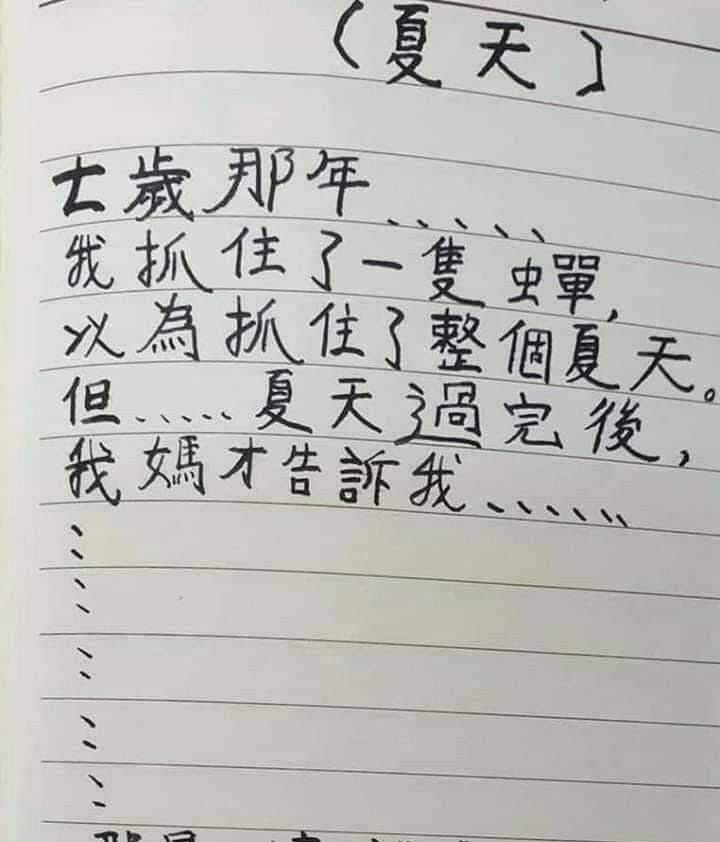 (夏天)
七歲那年......
我抓住了一隻蟬,
以為抓住了整個夏天。
但......夏天過完後,
我媽才告訴我......